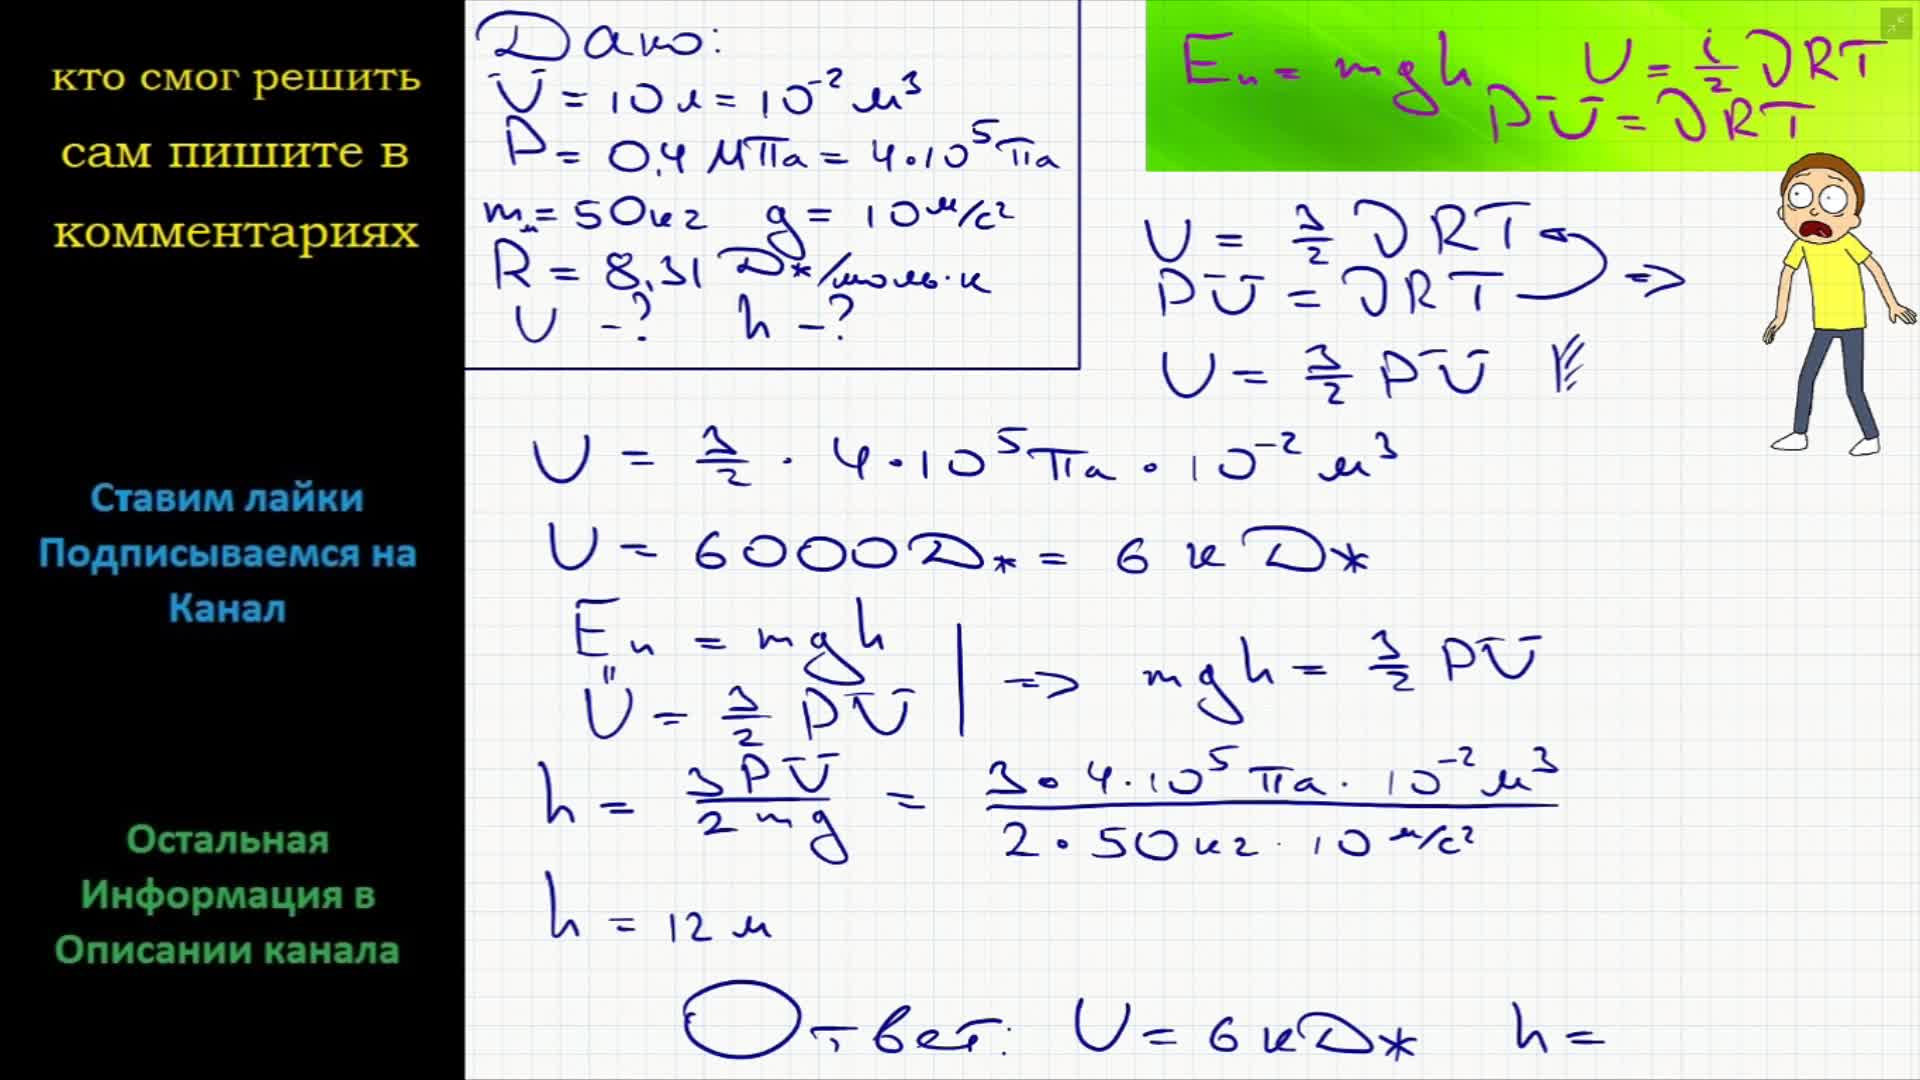 кто смог решить
сам пишите в
комментариях
Ставим лайки
Подписываемся на
Канал
Остальная
Информация в
Описании канала
Дано:
V̄ = 10 л = 10⁻² м³
P = 0,4 МПа = 4·10⁵ Па
mₘ = 50 кг g = 10 м/с²
R = 8,31 Дж/моль·к
U - ? h - ?
Eп = mgh U = i/2 νRT
PV̄ = νRT
U = 3/2 νRT
PV̄ = νRT =>
U = 3/2 PV̄
U = 3/2 · 4·10⁵ Па · 10⁻² м³
U = 6000 Дж = 6 кДж
Eп = mgh
U = 3/2 PV̄ => mgh = 3/2 PV̄
h = 3PV̄ / 2mg = 3·4·10⁵ Па · 10⁻² м³ / 2·50 кг · 10 м/с²
h = 12 м
Ответ: U = 6 кДж h =